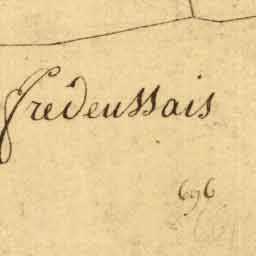 Fredeussais
696